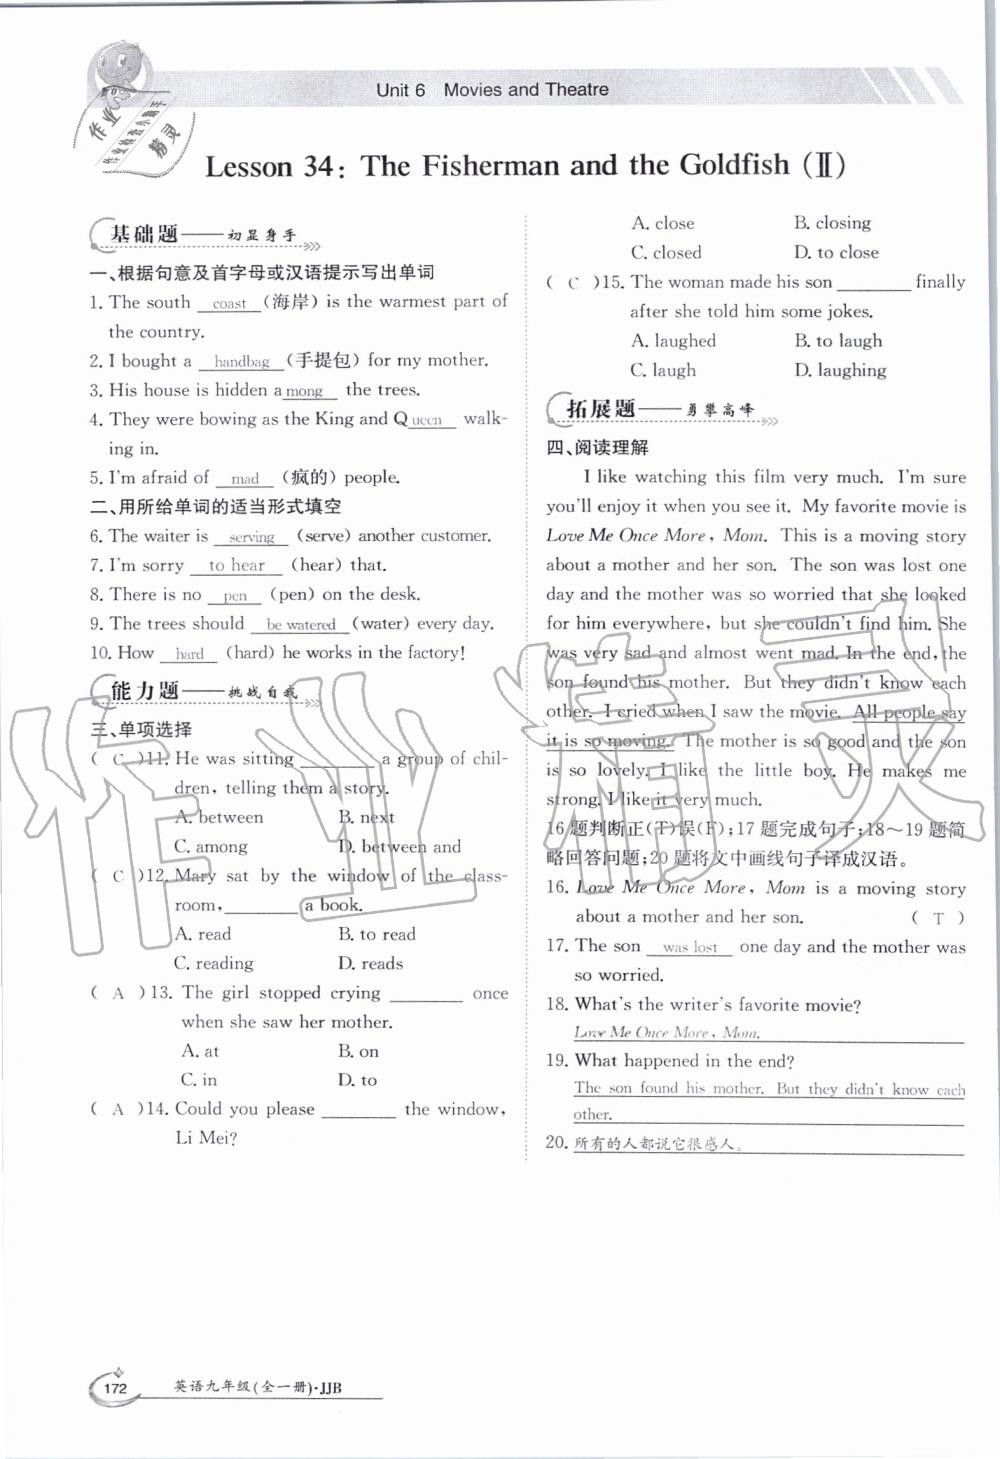 Unit 6 Movies and Theatre
作业
作业检查小助手
精灵
Lesson 34: The Fisherman and the Goldfish (Ⅱ)
基础题——初显身手
一、根据句意及首字母或汉语提示写出单词
1. The south coast (海岸) is the warmest part of
the country.
2. I bought a handbag (手提包) for my mother.
3. His house is hidden among the trees.
4. They were bowing as the King and Queen walk-
ing in.
5. I'm afraid of mad (疯的) people.
二、用所给单词的适当形式填空
6. The waiter is serving (serve) another customer.
7. I'm sorry to hear (hear) that.
8. There is no pen (pen) on the desk.
9. The trees should be watered (water) every day.
10. How hard (hard) he works in the factory!
能力题——挑战自我
三、单项选择
( C )11. He was sitting ________ a group of chil-
dren, telling them a story.
A. between B. next
C. among D. between and
( C )12. Mary sat by the window of the class-
room, ________ a book.
A. read B. to read
C. reading D. reads
( A )13. The girl stopped crying ________ once
when she saw her mother.
A. at B. on
C. in D. to
( A )14. Could you please ________ the window,
Li Mei?
A. close B. closing
C. closed D. to close
( C )15. The woman made his son ________ finally
after she told him some jokes.
A. laughed B. to laugh
C. laugh D. laughing
拓展题——勇攀高峰
四、阅读理解
I like watching this film very much. I'm sure
you'll enjoy it when you see it. My favorite movie is
Love Me Once More, Mom. This is a moving story
about a mother and her son. The son was lost one
day and the mother was so worried that she looked
for him everywhere, but she couldn't find him. She
was very sad and almost went mad. In the end, the
son found his mother. But they didn't know each
other. I cried when I saw the movie. All people say
it is so moving. The mother is so good and the son
is so lovely. I like the little boy. He makes me
strong. I like it very much.
16题判断正(T)误(F);17题完成句子;18~19题简
略回答问题;20题将文中画线句子译成汉语。
16. Love Me Once More, Mom is a moving story
about a mother and her son. ( T )
17. The son was lost one day and the mother was
so worried.
18. What's the writer's favorite movie?
Love Me Once More, Mom.
19. What happened in the end?
The son found his mother. But they didn't know each
other.
20. 所有的人都说它很感人。
作业精灵
172 英语九年级(全一册)·JJB